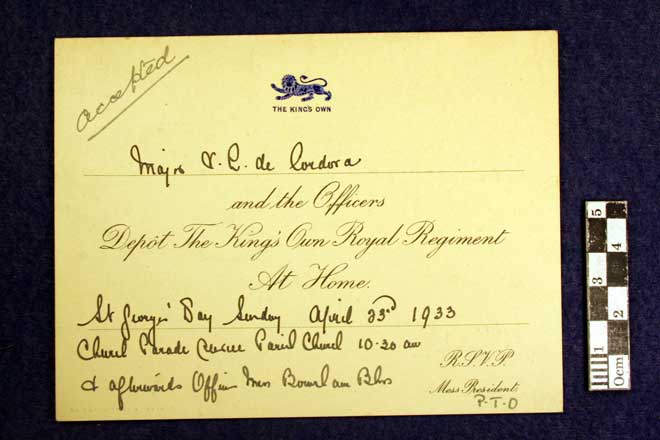 accepted
THE KING'S OWN
Major V. C. de Cordova
and the Officers
Depôt The King's Own Royal Regiment
At Home.
St George's Day Sunday April 23rd 1933
Church Parade Parish Church 10-30 am
& afterwards Officers Mess Bowerham Bks
R.S.V.P.
Mess President.
P.T.O
5
4
3
2
1
0cm